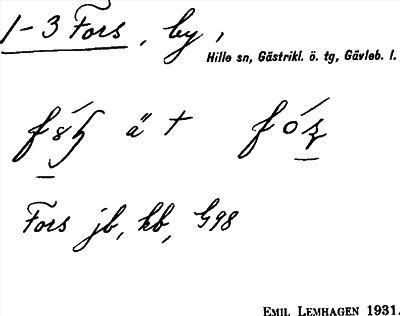 1-3 Fors, by,
Hille sn, Gästrikl. ö. tg, Gävleb. l.
ä
Fors jb, kb, G98
EMIL LEMHAGEN 1931.